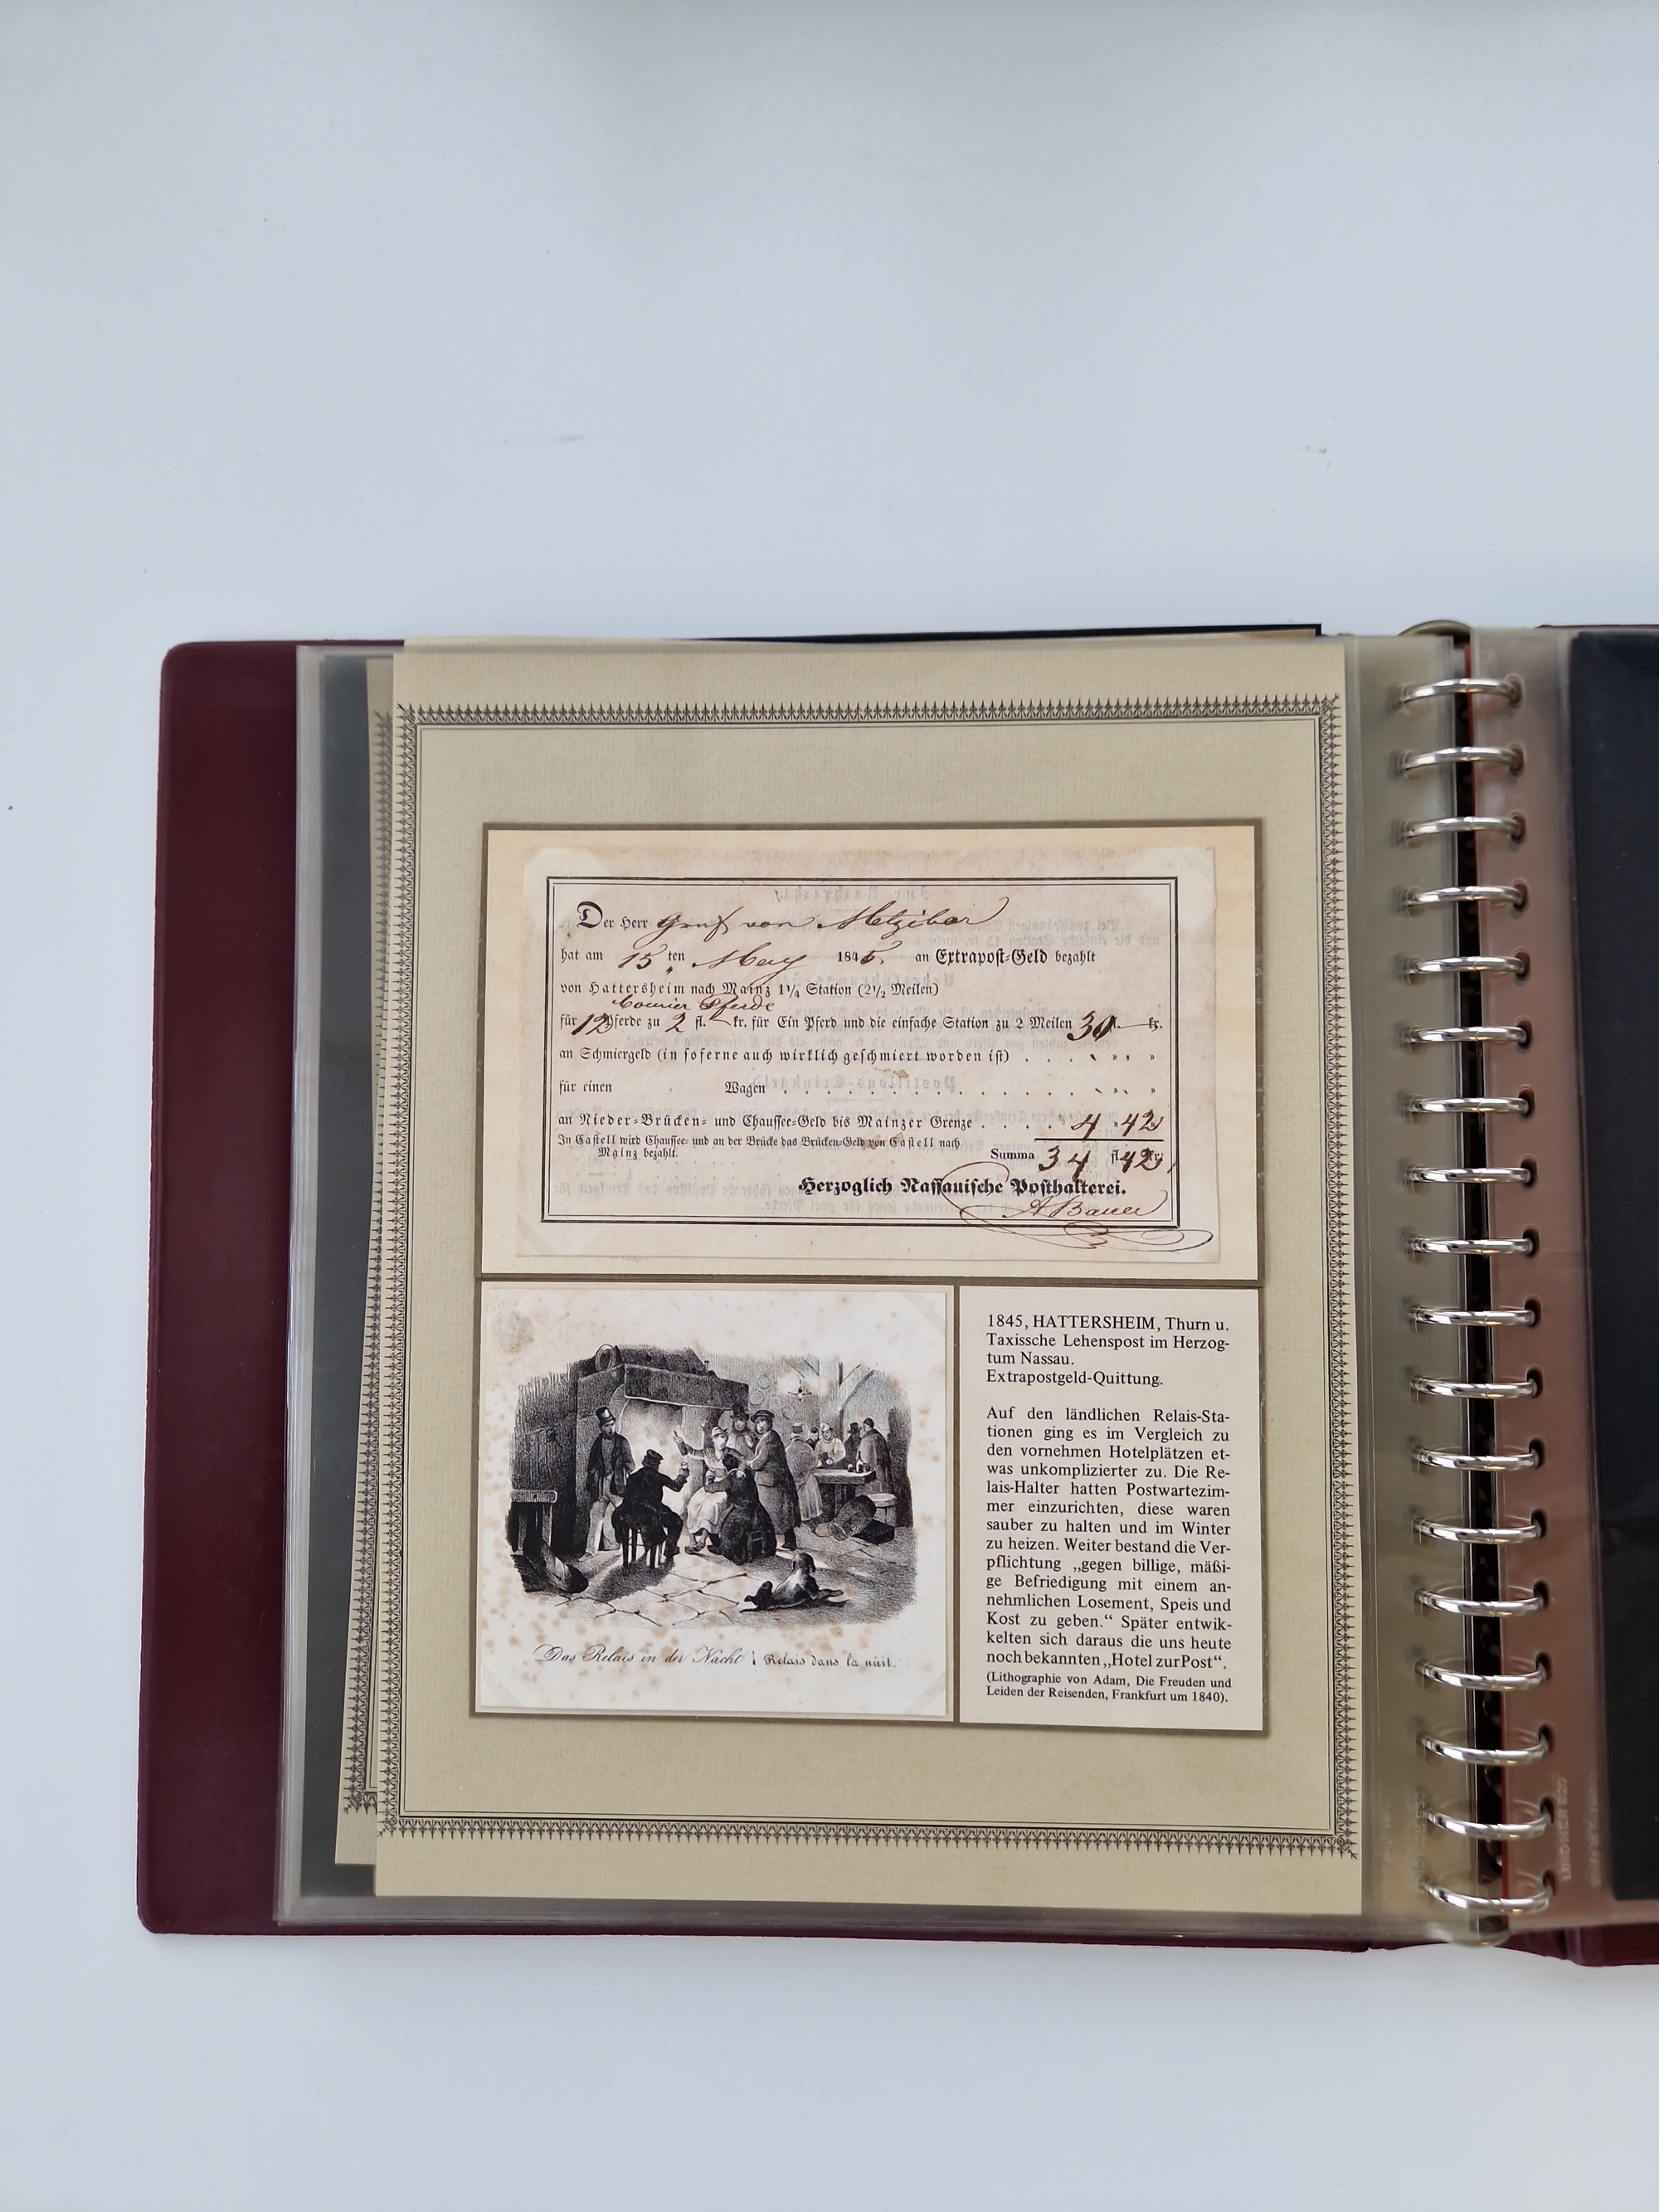 Der Herr Graf von
hat am 15 ten May 1845. an Extrapost-Geld bezahlt
von Hattersheim nach Mainz 1¼ Station (2½ Meilen)
Courier Pferde
für 12 Pferde zu 2 fl. – kr. für Ein Pferd und die einfache Station zu 2 Meilen 30 fl. — kr.
an Schmiergeld (in soferne auch wirklich geschmiert worden ist) . . . " " "
für einen Wagen . . . . . . . . . . . . . . " " "
an Nieder-Brücken- und Chaussee-Geld bis Mainzer Grenze . . . . 4 " 42
In Castell wird Chaussee- und an der Brücke das Brücken-Geld von Castell nach
Mainz bezahlt.
Summa 34 fl. 42 kr.
Herzoglich Nassauische Posthalterei.
A Bauer
Das Relais in der Nacht
Relais dans la nuit.
1845, HATTERSHEIM, Thurn u.
Taxissche Lehenspost im Herzog-
tum Nassau.
Extrapostgeld-Quittung.
Auf den ländlichen Relais-Sta-
tionen ging es im Vergleich zu
den vornehmen Hotelplätzen et-
was unkomplizierter zu. Die Re-
lais-Halter hatten Postwartezim-
mer einzurichten, diese waren
sauber zu halten und im Winter
zu heizen. Weiter bestand die Ver-
pflichtung „gegen billige, mäßi-
ge Befriedigung mit einem an-
nehmlichen Losement, Speis und
Kost zu geben.“ Später entwik-
kelten sich daraus die uns heute
noch bekannten „Hotel zur Post“.
(Lithographie von Adam, Die Freuden und
Leiden der Reisenden, Frankfurt um 1840).
LINDNER 820